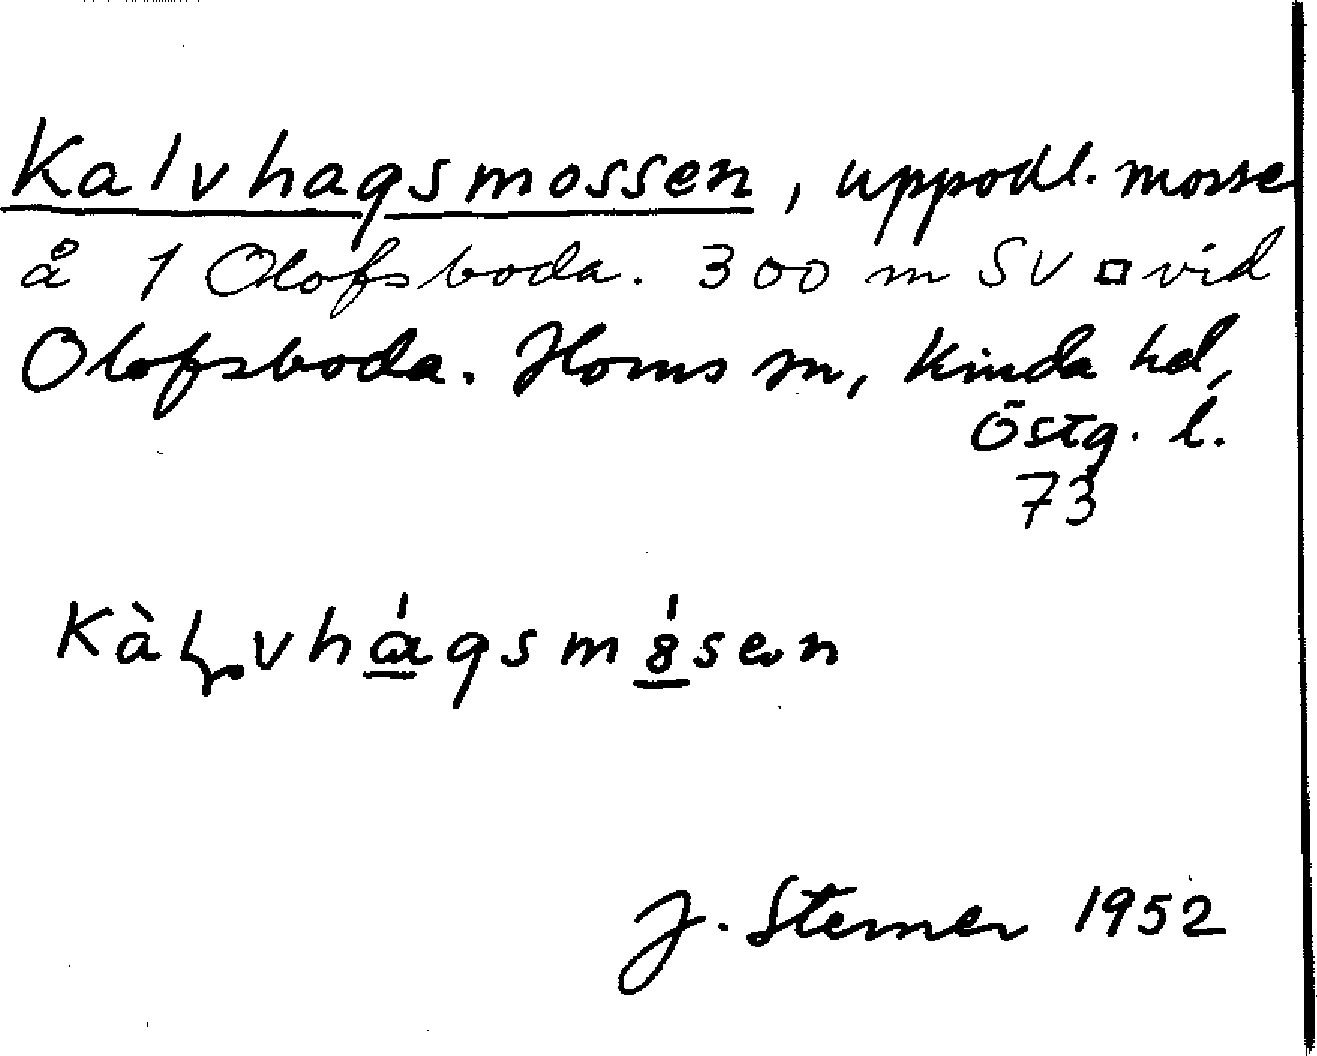 Kalvhagsmossen, uppodl. mosse
å 1 Olofsboda. 300 m SV □ vid
Olofsboda. Horns sn, Kinda hd,
Östg. l.
73
J. Sterner 1952